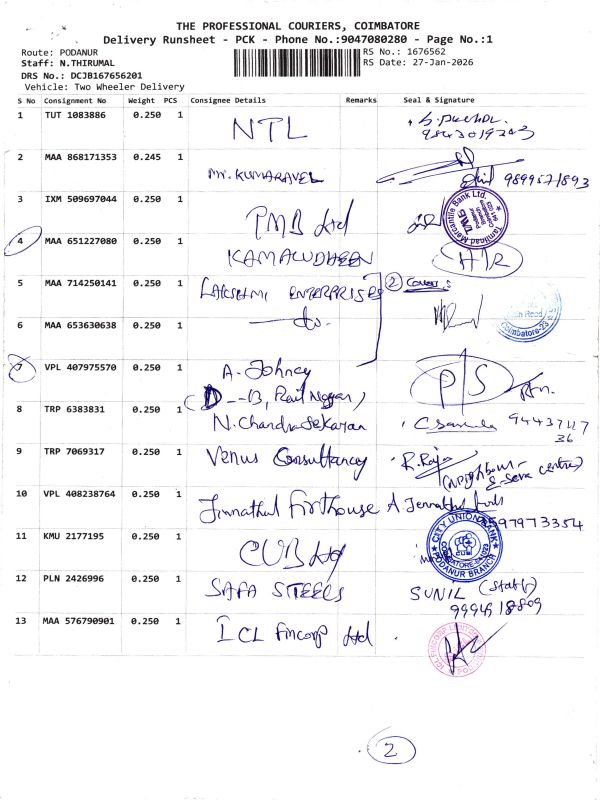 THE PROFESSIONAL COURIERS, COIMBATORE
Delivery Runsheet - PCK - Phone No.:9047080280 - Page No.:1
Route: PODANUR
RS No.: 1676562
Staff: N.THIRUMAL
RS Date: 27-Jan-2026
DRS No.: DCJB167656201
Vehicle: Two Wheeler Delivery
S No Consignment No Weight PCS Consignee Details Remarks Seal & Signature
1 TUT 1083886 0.250 1 NTL
9843019243
2 MAA 868171353 0.245 1 Mr. KUMARAVEL
9899571893
3 IXM 509697044 0.250 1 PMB Ltd
Tamilnad Mercantile Bank Ltd.
4 MAA 651227080 0.250 1 KAMALUDHEEN H/R
5 MAA 714250141 0.250 1 LAKSHMI ENTERPRISES 2 Covers
6 MAA 653630638 0.250 1 do
Coimbatore-23
7 VPL 407975570 0.250 1 A. Johney P/S
(D--B, Rail Nagar)
8 TRP 6383831 0.250 1 N. Chandrasekaran
36
9 TRP 7069317 0.250 1 Venus Consultancy R. Raja
(Neighbour - E-Seva centre)
10 VPL 408238764 0.250 1 Jinnathul Firthouse A. Jennathul
11 KMU 2177195 0.250 1 CUB Ltd
CITY UNION BANK
PODANUR BRANCH
12 PLN 2426996 0.250 1 SAFA STEELS SUNIL (staff)
13 MAA 576790901 0.250 1 ICL Fincorp Ltd
2